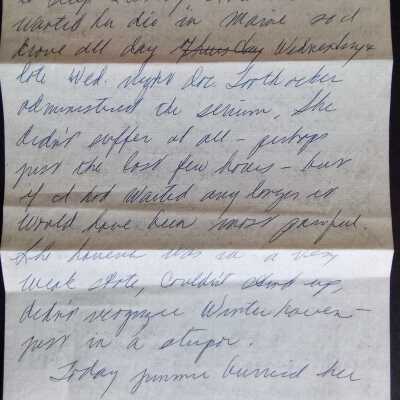 wanted her die in Maine so I
drove all day Thursday Wednesday &
late Wed. night Doc Toothacher
administered the serum, She
didn't suffer at all - perhaps
just the last few hours - but
if I had waited any longer it
would have been most painful.
She however was in a very
weak state, couldn't stand up,
didn't recognize Winterhaven -
just in a stupor.
Today Jimmie burried her